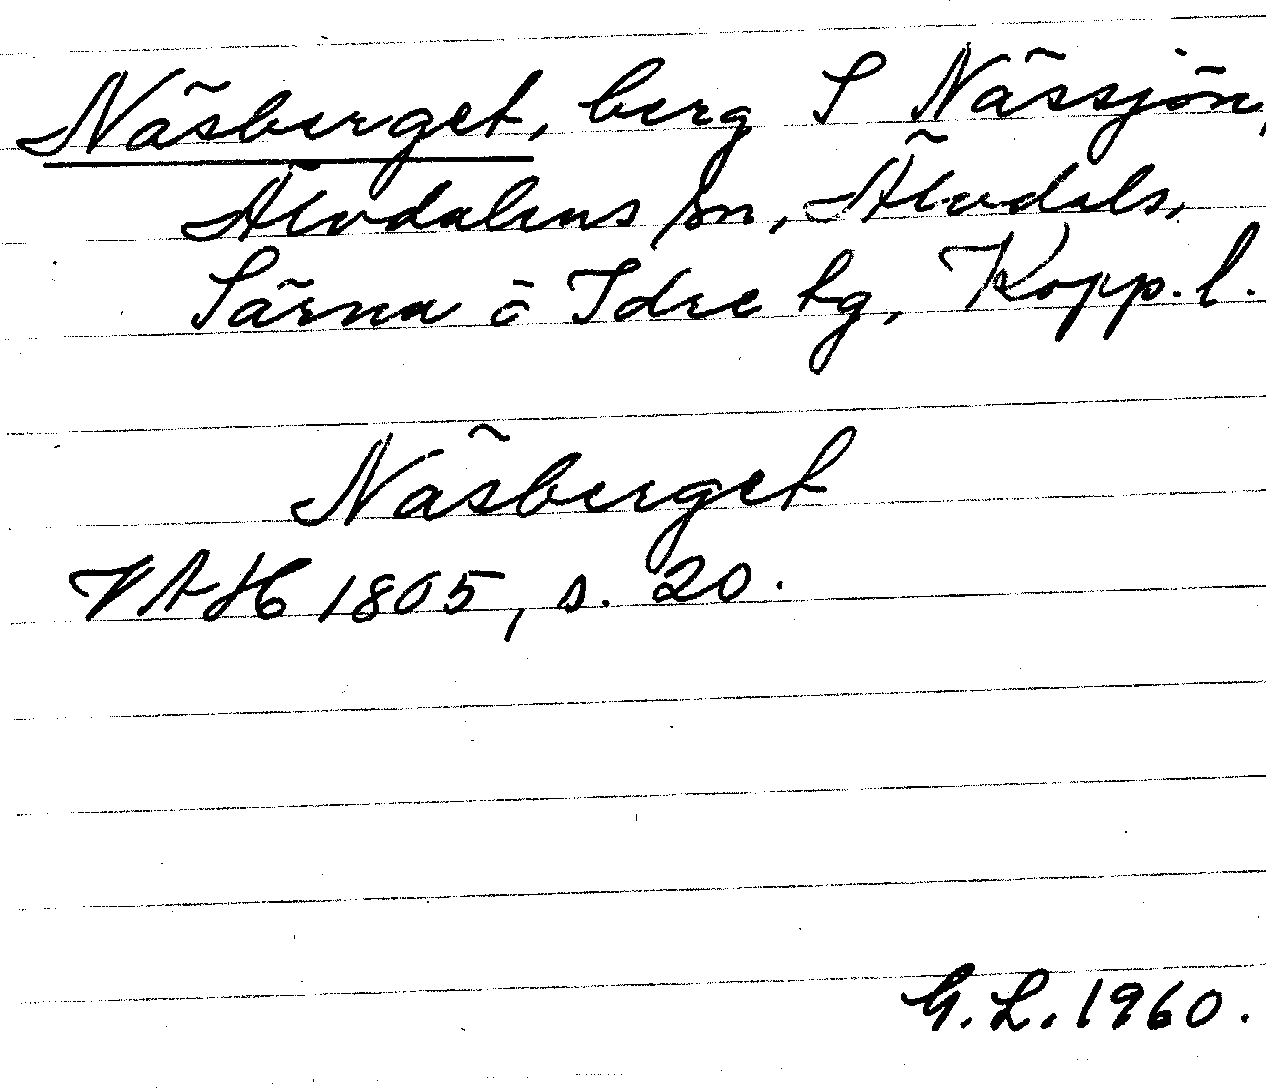 Näsberget, berg S Nässjön,
Älvdalens sn, Älvdals,
Särna o Idre tg, Kopp. l.
Näsberget
VAH 1805, s. 20.
G. L. 1960.